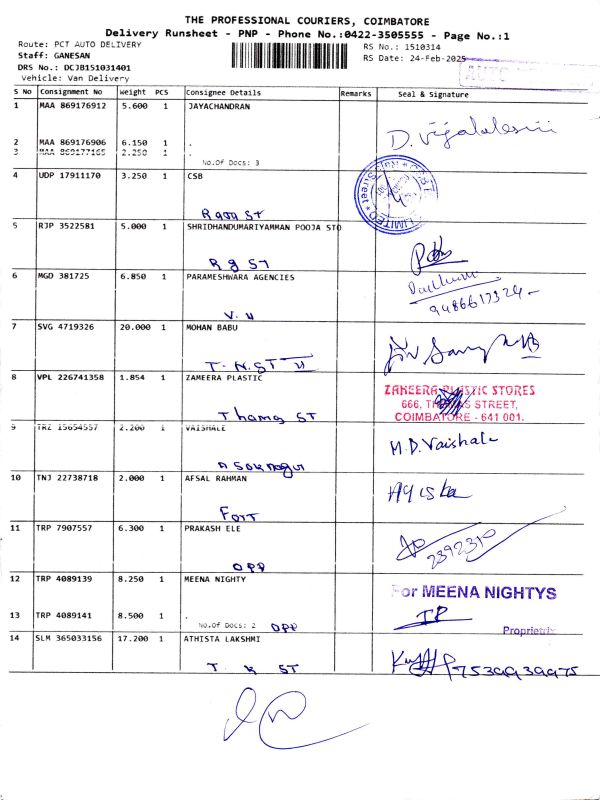 THE PROFESSIONAL COURIERS, COIMBATORE
Delivery Runsheet - PNP - Phone No.:0422-3505555 - Page No.:1
Route: PCT AUTO DELIVERY RS No.: 1510314
Staff: GANESAN RS Date: 24-Feb-2025
DRS No.: DCJB151031401 AUTO
Vehicle: Van Delivery
S No Consignment No Weight PCS Consignee Details Remarks Seal & Signature
1 MAA 869176912 5.600 1 JAYACHANDRAN
2 MAA 869176906 6.150 1 .
3 MAA 869177165 2.250 1 .
No.Of Docs: 3
4 UDP 17911170 3.250 1 CSB
LIMITED
Street
5 RJP 3522581 5.000 1 SHRIDHANDUMARIYAMMAN POOJA STO
R g ST
6 MGD 381725 6.850 1 PARAMESHWARA AGENCIES
V. H
7 SVG 4719326 20.000 1 MOHAN BABU
T. N. ST
8 VPL 226741358 1.854 1 ZAMEERA PLASTIC
ZAMEERA PLASTIC STORES
666, THOMAS STREET,
COIMBATORE - 641 001.
Thamas ST
9 TRZ 15654557 2.200 1 VAISHALE
M.D.Vaishali
10 TNJ 22738718 2.000 1 AFSAL RAHMAN
Fort
11 TRP 7907557 6.300 1 PRAKASH ELE
2392310
OPP
12 TRP 4089139 8.250 1 MEENA NIGHTY
For MEENA NIGHTYS
13 TRP 4089141 8.500 1 .
No.Of Docs: 2 OPP
Proprietrix
14 SLM 365033156 17.200 1 ATHISTA LAKSHMI
T. K ST 7539939975